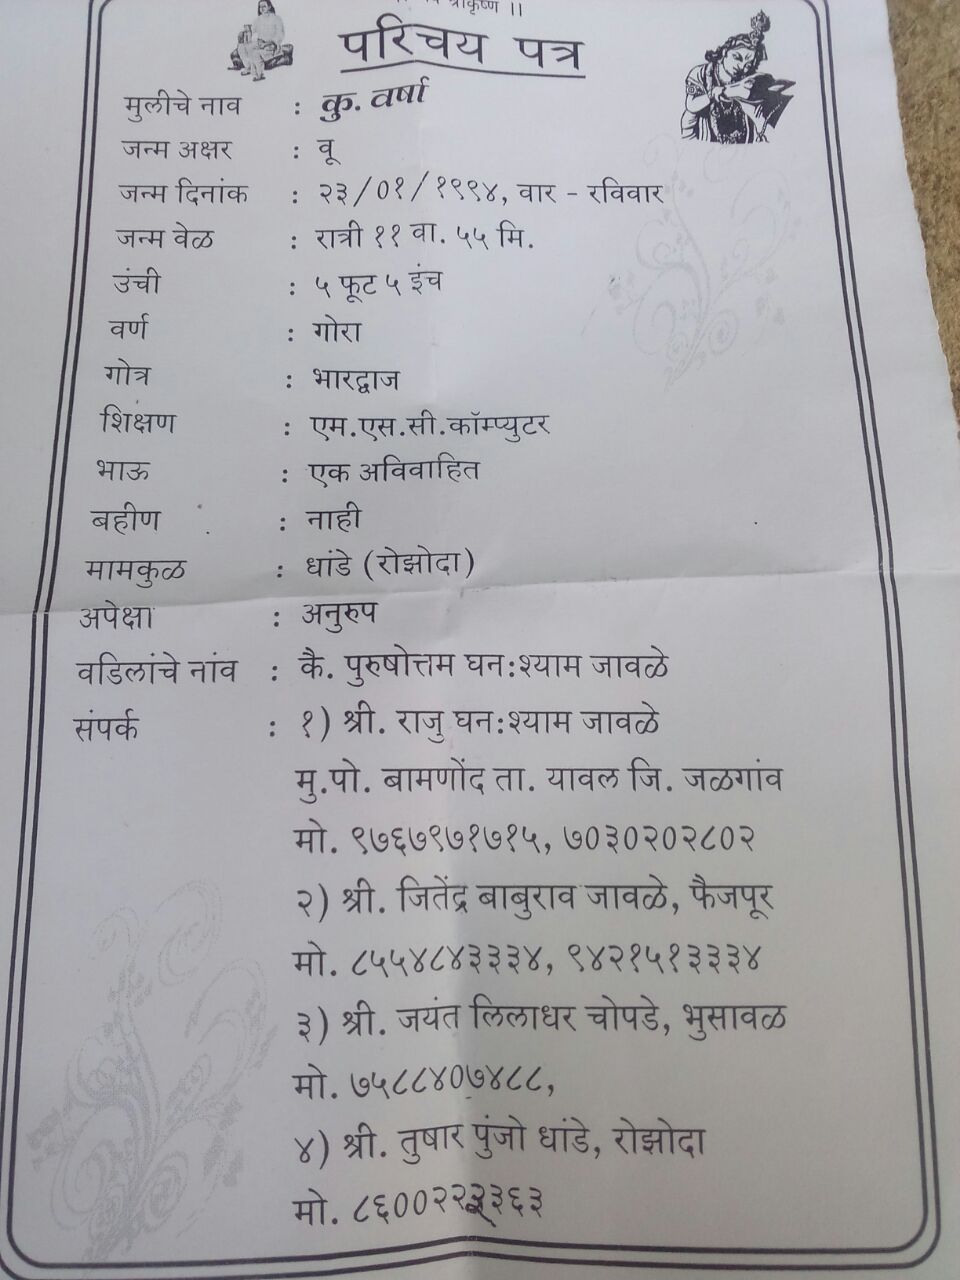 श्रीकृष्ण ।।
परिचय पत्र
मुलीचे नाव : कु. वर्षा
जन्म अक्षर : वू
जन्म दिनांक : २३/०१/१९९४, वार - रविवार
जन्म वेळ : रात्री ११ वा. ५५ मि.
उंची : ५ फूट ५ इंच
वर्ण : गोरा
गोत्र : भारद्वाज
शिक्षण : एम.एस.सी.कॉम्प्युटर
भाऊ : एक अविवाहित
बहीण : नाही
मामकुळ : धांडे (रोझोदा)
अपेक्षा : अनुरुप
वडिलांचे नांव : कै. पुरुषोत्तम घन:श्याम जावळे
संपर्क : १) श्री. राजु घन:श्याम जावळे
मु.पो. बामणोंद ता. यावल जि. जळगांव
मो. ९७६७९७१७१५, ७०३०२०२८०२
२) श्री. जितेंद्र बाबुराव जावळे, फैजपूर
मो. ८५५४८४३३३४, ९४२१५१३३३४
३) श्री. जयंत लिलाधर चोपडे, भुसावळ
मो. ७५८८४०७४८८,
४) श्री. तुषार पुंजो धांडे, रोझोदा
मो. ८६००२२३३६३